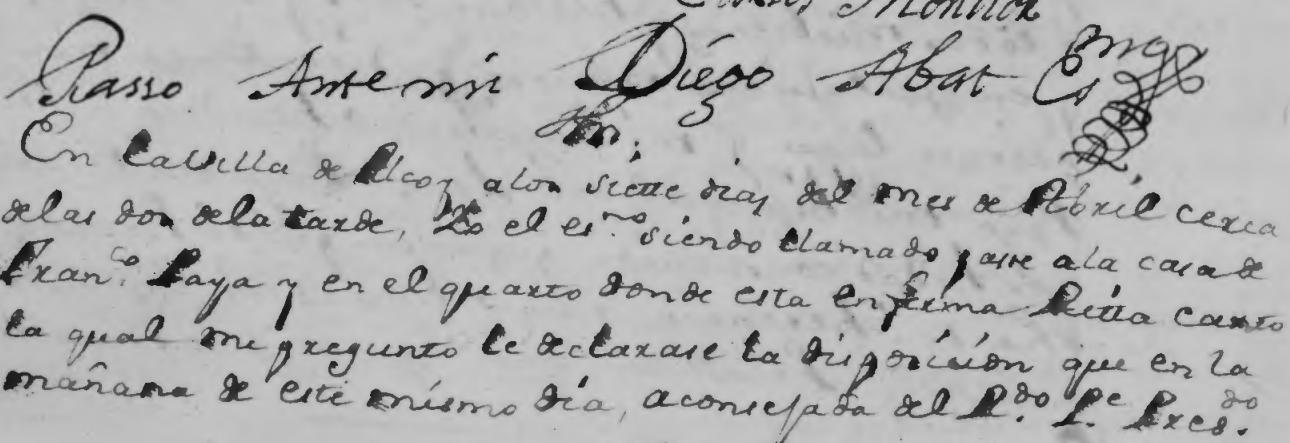 Monllor
Passo Antemi Diego Abat Es.no
En la Villa de Alcoy alos siette dias del mes de Abril cerca
delas dos dela tarde, Yo el es.no siendo llamado passe ala casa de
Fran.co Paya y en el quarto donde esta enferma Ritta Canto
la qual me pregunto le declarase la disposision que en la
mañana de este mismo dia, aconsejada del R.do P.e Pres.do